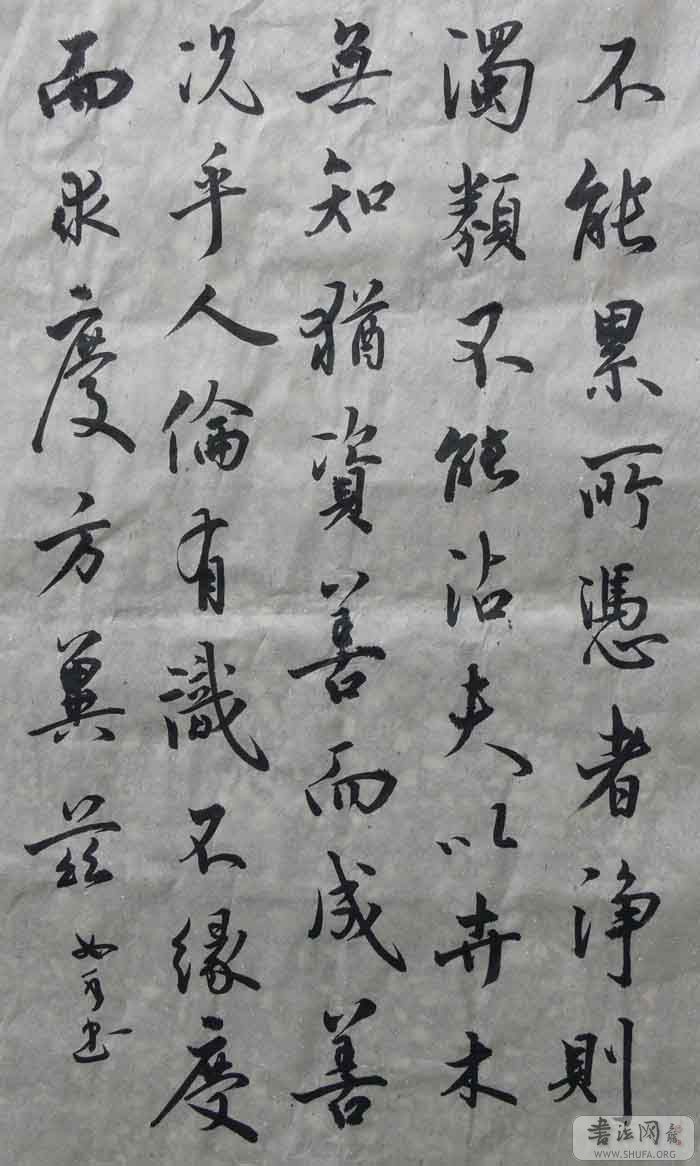 不能累所憑者淨則
濁類不能沾夫以卉木
無知猶資善而成善
况乎人倫有識不緣慶
而求慶方冀茲
如可書
書法网
WWW.SHUFA.ORG